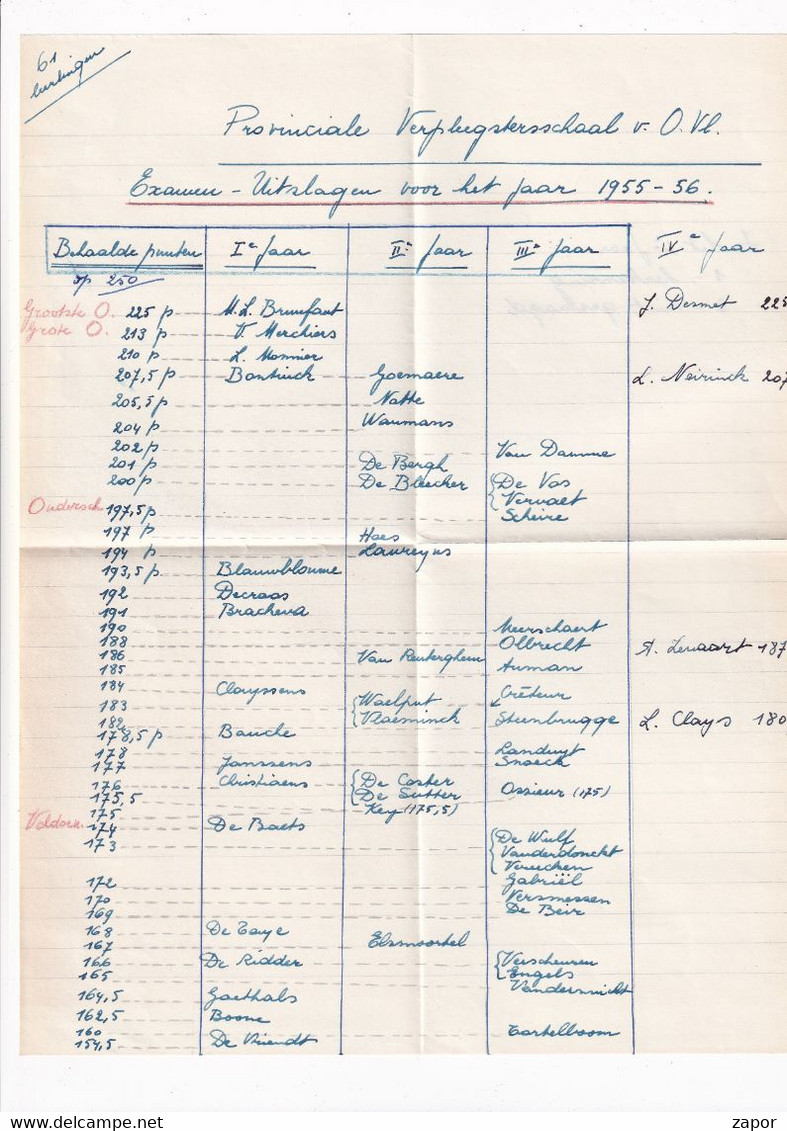 61
leerlingen
Provinciale Verpleegstersschool v. O. Vl.
Examen - Uitslagen voor het jaar 1955-56.
Behaalde punten Iᵉ Jaar IIᵉ Jaar IIIᵉ jaar IVᵉ Jaar
op 250
Grootste O. 225 p M. L. Brunfaut J. Desmet 225
Grote O. 213 p V. Merchiers
210 p L. Monnier
207,5 p Bontinck Goemaere L. Neirinck 207
205,5 p Natte
204 p Waumans
202 p Van Damme
201 p De Bergh
200 p De Bleecker De Vos
Vervaet
Ondersch. 197,5 p Scheire
197 p Haes
194 p Laureyns
193,5 p Blauwblomme
192 Decraos
191 Bracheva
190 Meerschaert
188 Olbrecht A. Lenaart 187
186 Van Renterghem
185 Auman
184 Clayssens Créteur
183 Waelput
182 Vlaeminck Steenbrugge L. Clays 180
178,5 p Bauche
178 Landuyt
177 Janssens Snoeck
176 Christiaens De Coster
175,5 De Sutter Ossieur (175)
175 Key (175,5)
Voldoen. 174 De Baets
173 De Wulf
Vanderdonckt
Vereecken
172 Gabriël
170 Versmessen
169 De Beir
168 De Taye
167 Elsmoortel
166 De Ridder Verscheuren
165 Engels
164,5 Goethals Vandersnickt
162,5 Boone
160 Tortelboom
154,5 De Vriendt
zapor